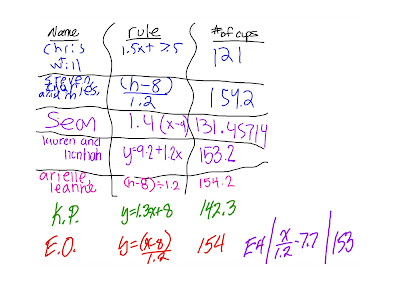 Name rule # of cups
Chris
Will 1.5x+7.5 121
Steven,
and mies (h-8)/1.2 154.2
Sean 1.4(x-9) 131.45714
lauren and
hannah y=9.2+1.2x 153.2
arielle
leanne (h-8)÷1.2 154.2
K.P. y=1.3x+8 142.3
E.O. y=(x-8)/1.2 154
EA x/1.2-7.7 153